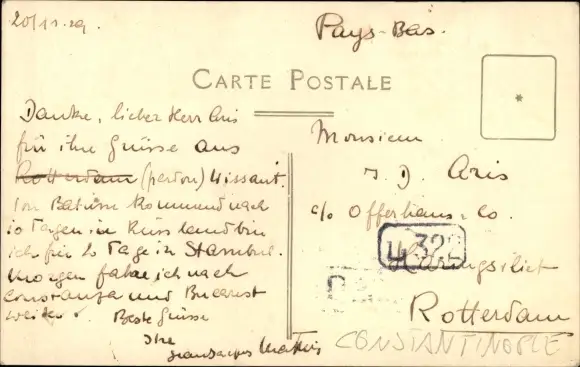 20/11.29.
Pays-Bas.
CARTE POSTALE
Danke, lieber Herr Aris
für ihre Grüsse aus
Rotterdam (pardon) Wissant.
Von Batum kommend nach
10 Tagen in Russland bin
ich für 2 Tage in Stambul.
Morgen fahre ich nach
Constanza und Bucarest
weiter. Beste Grüsse
Ihr
Monsieur
J. D. Aris
c/o Offerhaus & Co.
4322
Rotterdam
CONSTANTINOPLE